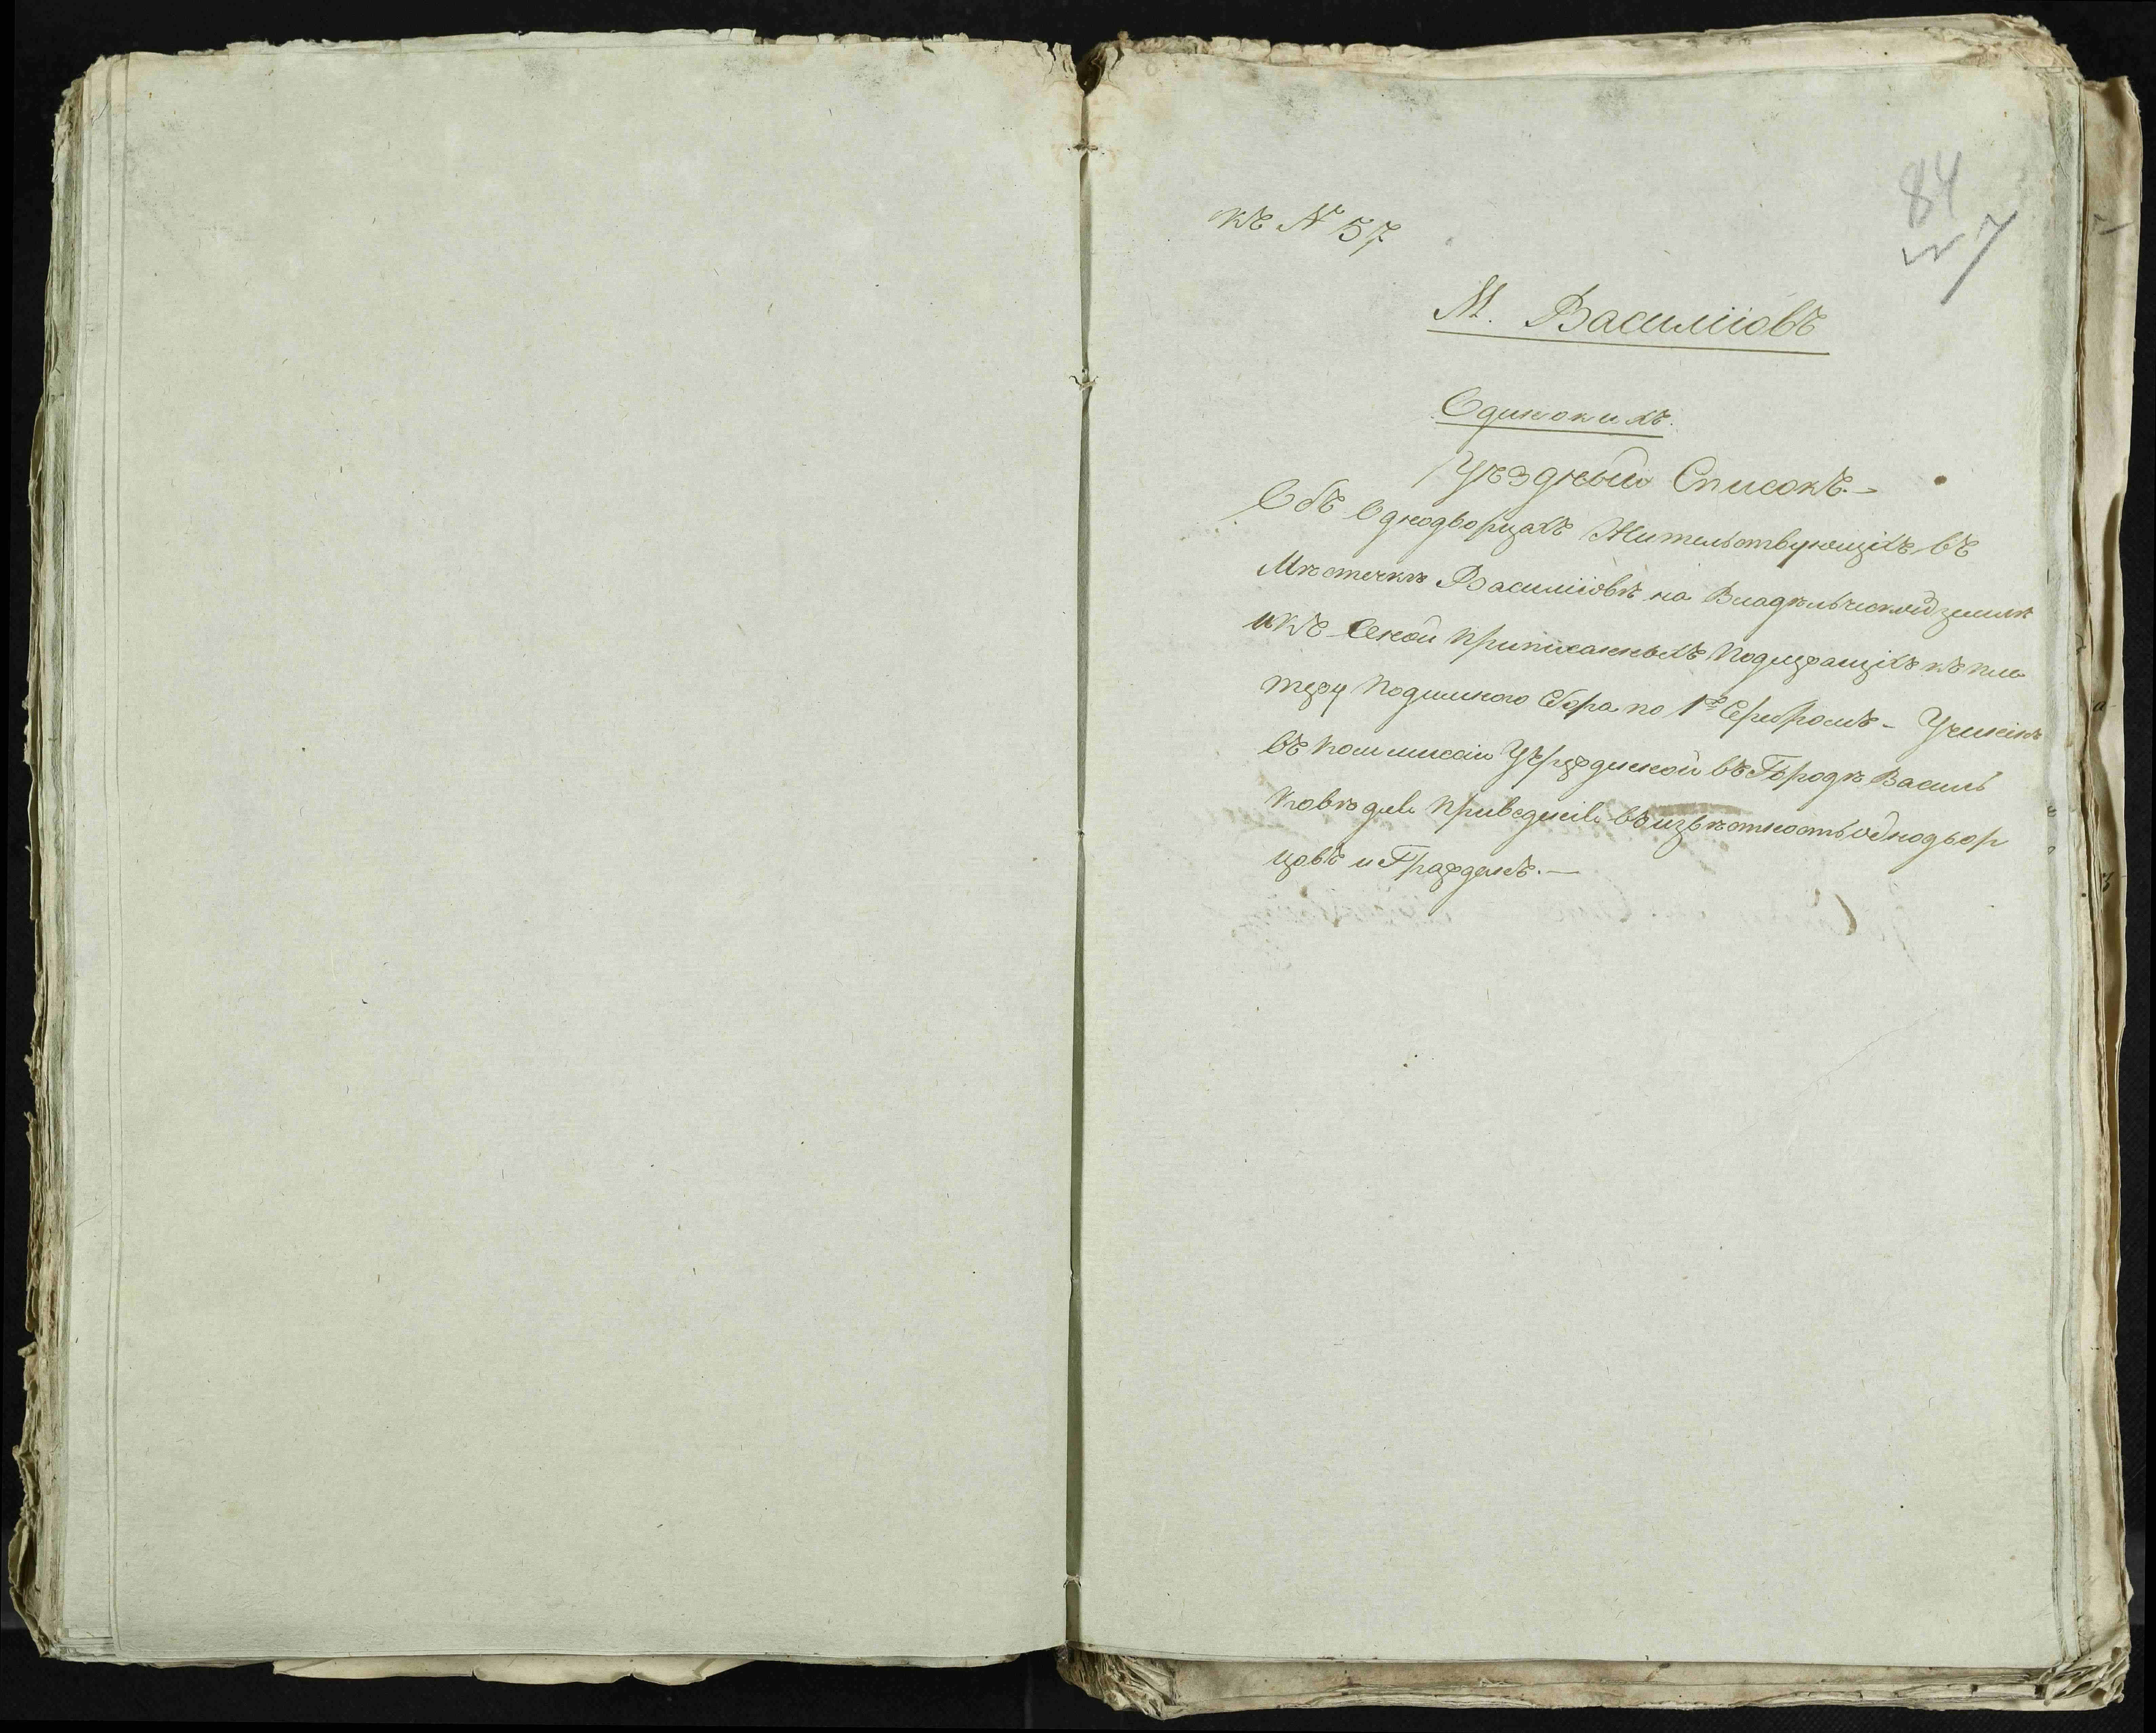 къ № 57
84
7
М. Василіовъ
Одинокихъ.
Уѣздный Списокъ.—
Объ Однодворцахъ Жительствующихъ въ
Мѣстечкѣ Василіовѣ на Владѣльческой землѣ
и къ Оной приписанныхъ Подлежащихъ къ пла
тежу Подымного Сбора по 1 р. Серебромъ - Учинен
въ Коммисіи Учрежденной въ Городѣ Василь
ковѣ для приведенія въ извѣстность однодвор
цовъ и Гражданъ.—